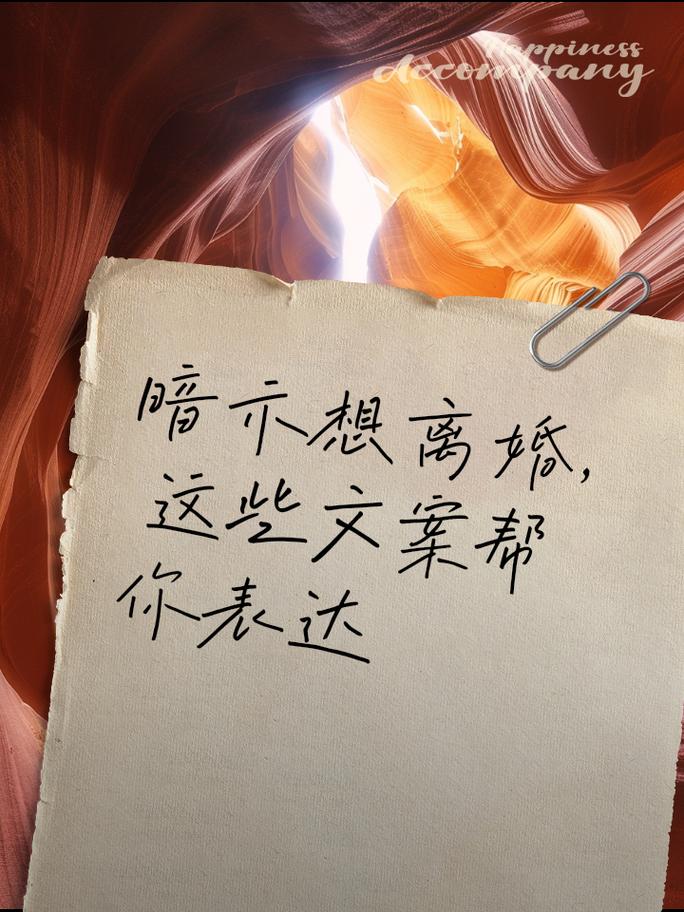 Happiness
Accompany
暗示想离婚,
这些文案帮
你表达